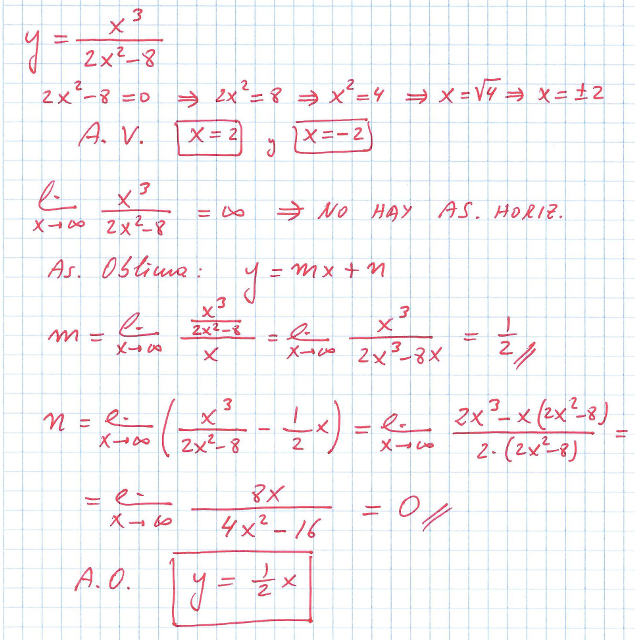 y = x³/(2x²-8)
2x²-8=0 ⇒ 2x²=8 ⇒ x²=4 ⇒ x=√4 ⇒ x=±2
A. V. x=2 y x=-2
lim x→∞ x³/(2x²-8) = ∞ ⇒ NO HAY AS. HORIZ.
As. Oblicua: y = mx+n
m = lim x→∞ (x³/(2x²-8))/x = lim x→∞ x³/(2x³-8x) = 1/2 //
n = lim x→∞ (x³/(2x²-8) - 1/2 x) = lim x→∞ (2x³-x(2x²-8))/(2·(2x²-8)) =
= lim x→∞ 8x/(4x²-16) = 0 //
A.O. y = 1/2 x